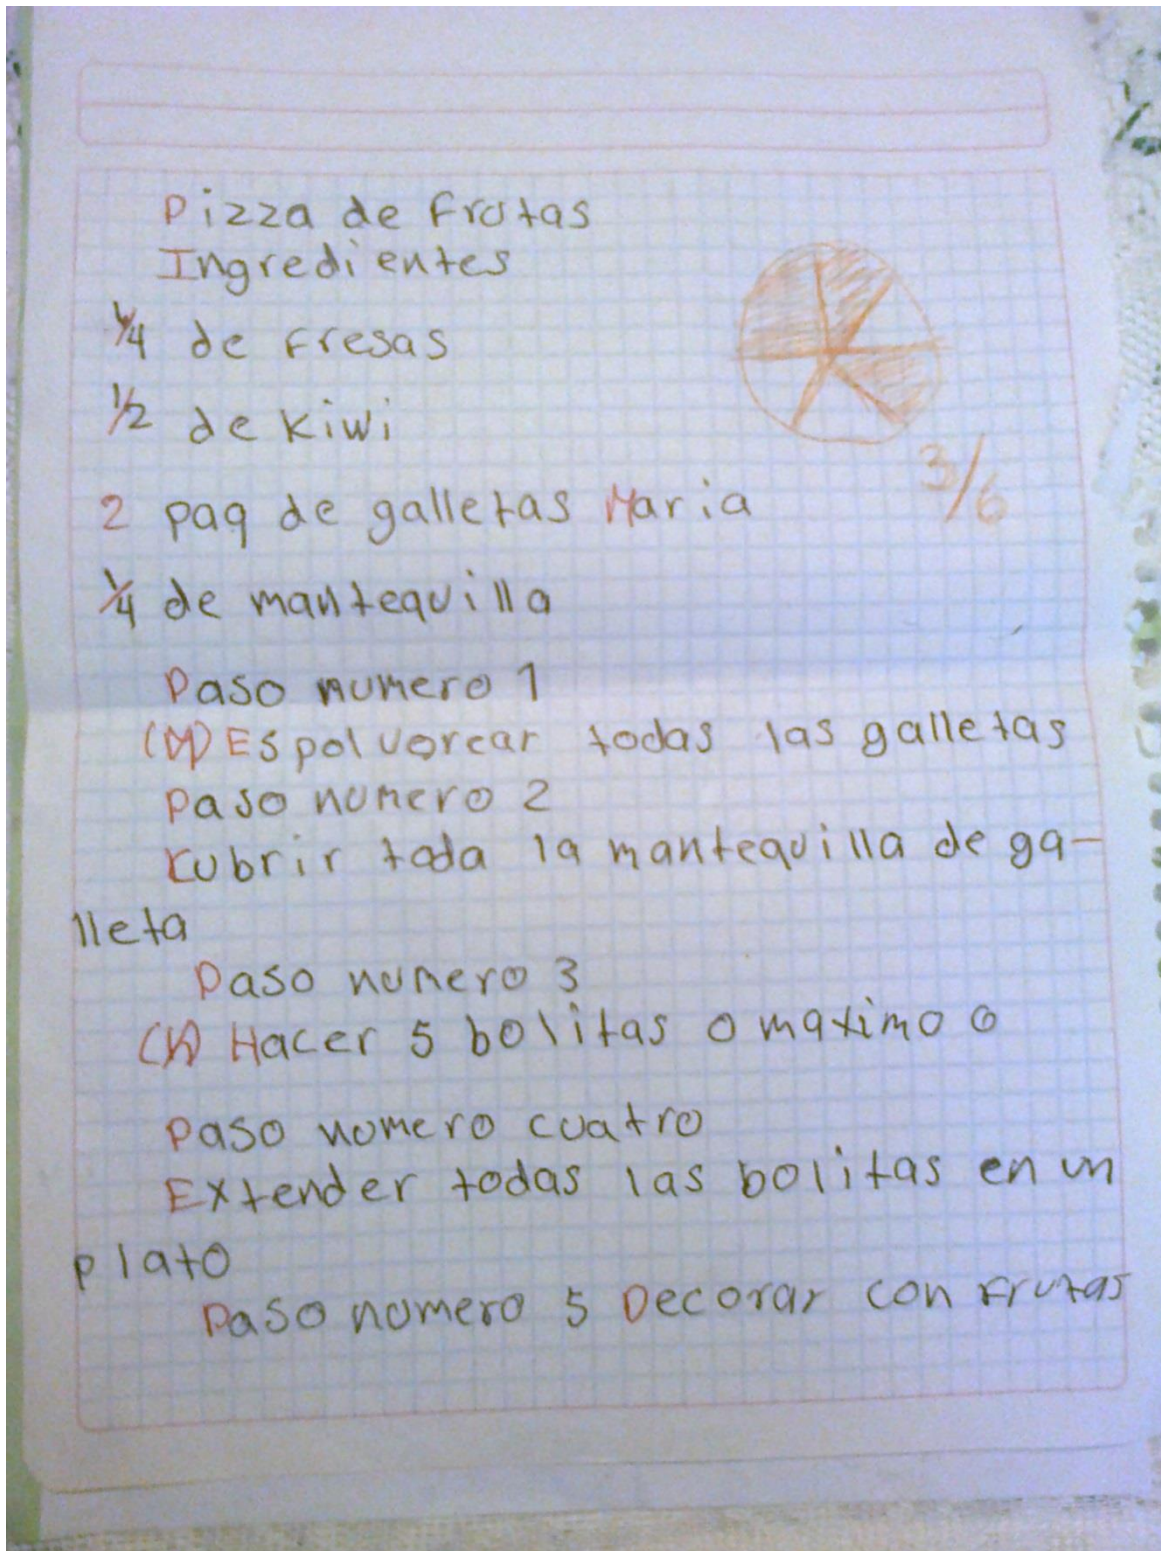 Pizza de frutas
Ingredientes
1/4 de fresas
1/2 de kiwi
3/6
2 paq de galletas Maria
1/4 de mantequilla
Paso numero 1
Espolvorear todas las galletas
Paso numero 2
cubrir toda la mantequilla de ga-
lleta
Paso numero 3
Hacer 5 bolitas o maximo 6
Paso numero cuatro
Extender todas las bolitas en un
plato
Paso numero 5 Decorar con frutas